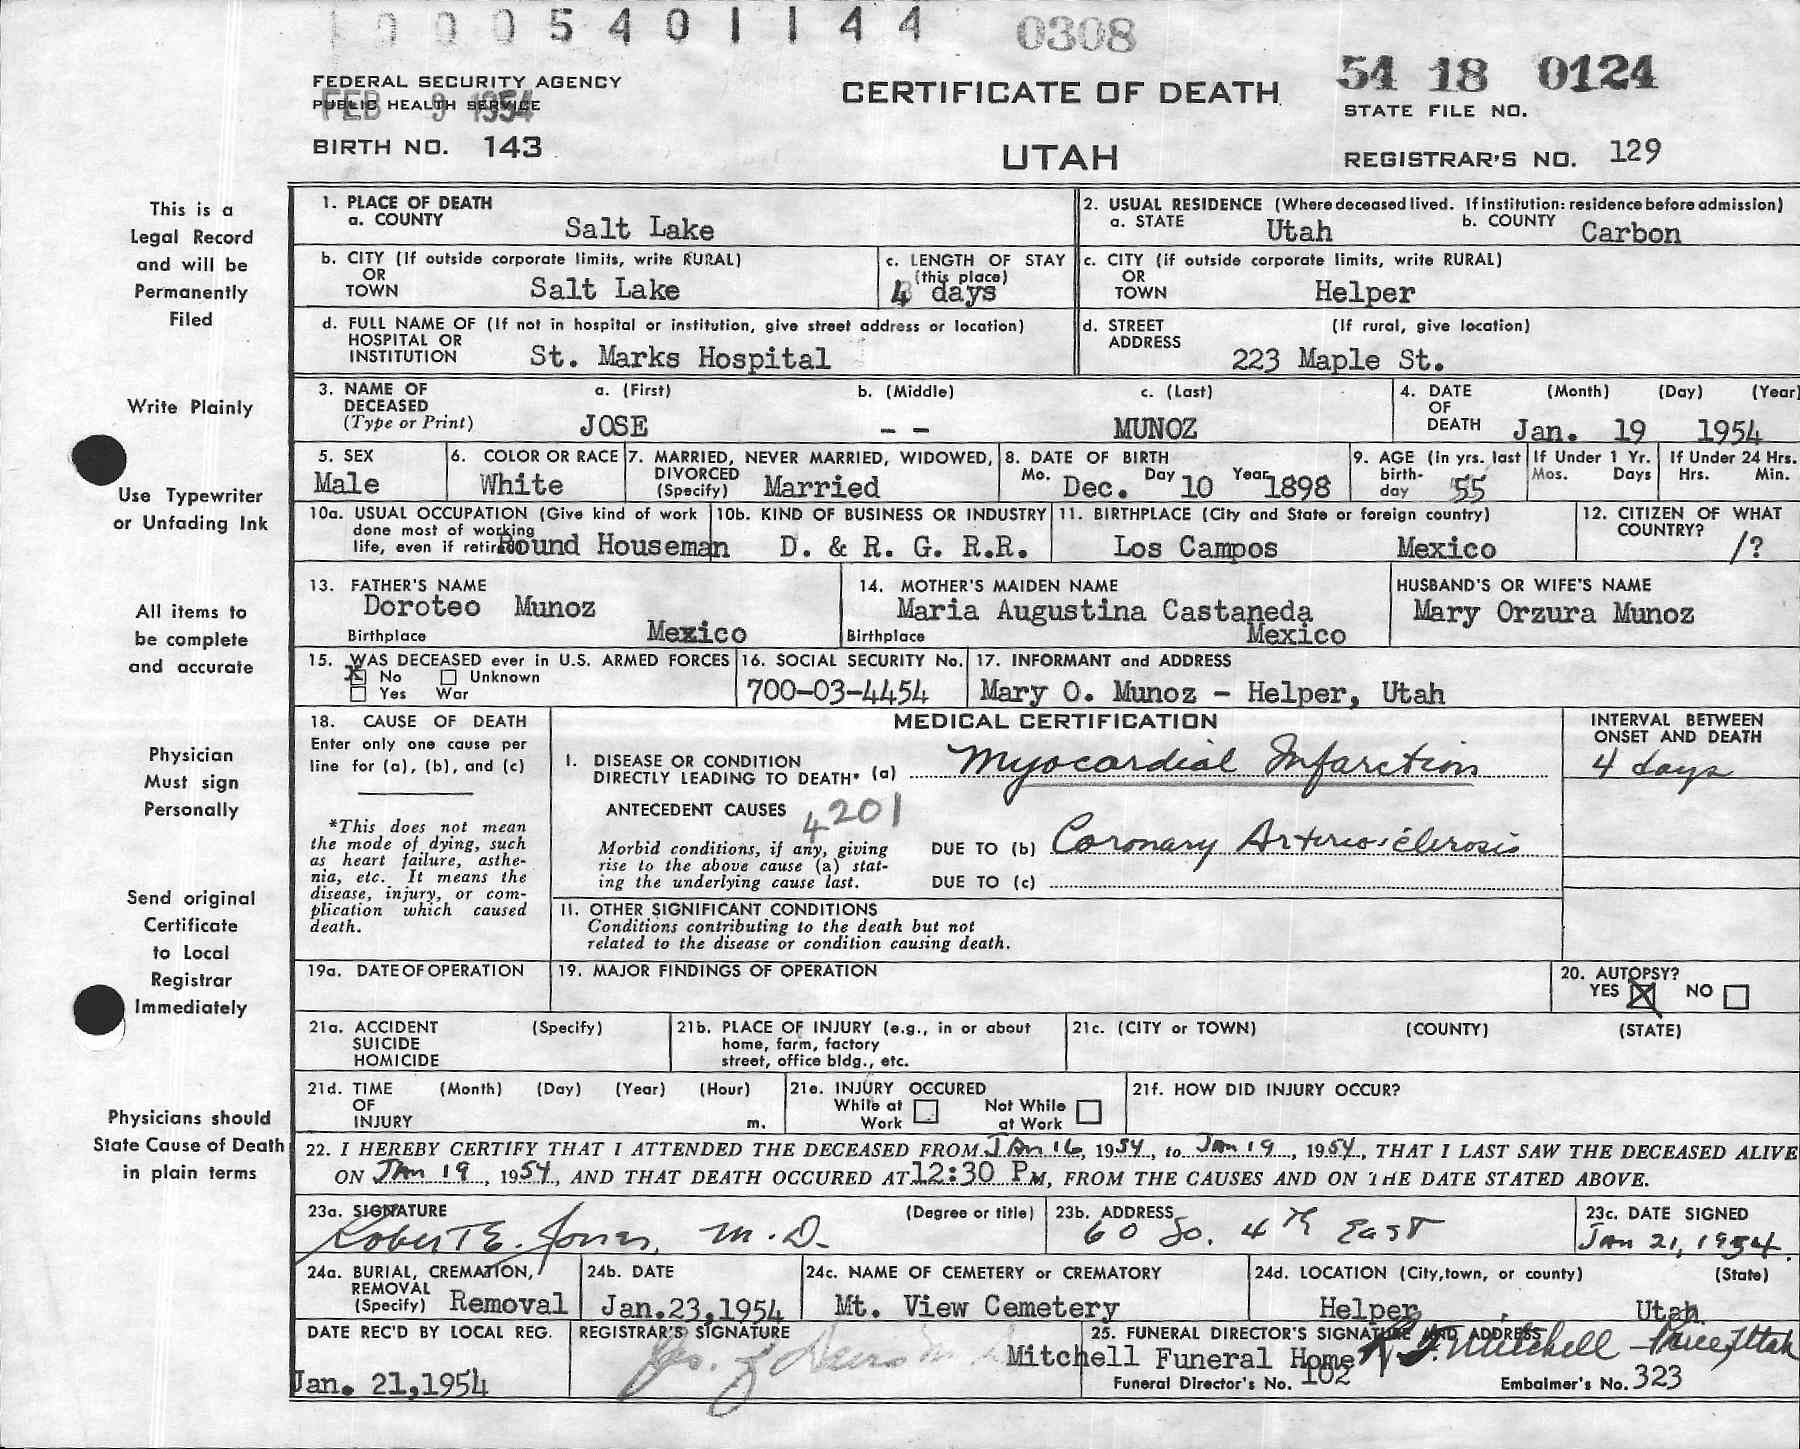 10005401144 0308
54 18 0124
FEDERAL SECURITY AGENCY
PUBLIC HEALTH SERVICE
FEB 9 1954
CERTIFICATE OF DEATH
STATE FILE NO.
BIRTH NO. 143
UTAH
REGISTRAR'S NO. 129
This is a
Legal Record
and will be
Permanently
Filed
Write Plainly
Use Typewriter
or Unfading Ink
All items to
be complete
and accurate
Physician
Must sign
Personally
Send original
Certificate
to Local
Registrar
Immediately
Physicians should
State Cause of Death
in plain terms
1. PLACE OF DEATH
a. COUNTY Salt Lake
2. USUAL RESIDENCE (Where deceased lived. If institution: residence before admission)
a. STATE Utah b. COUNTY Carbon
b. CITY (If outside corporate limits, write RURAL)
OR
TOWN Salt Lake
c. LENGTH OF STAY
(this place)
4 days
c. CITY (if outside corporate limits, write RURAL)
OR
TOWN Helper
d. FULL NAME OF (If not in hospital or institution, give street address or location)
HOSPITAL OR
INSTITUTION St. Marks Hospital
d. STREET (If rural, give location)
ADDRESS
223 Maple St.
3. NAME OF a. (First) b. (Middle) c. (Last)
DECEASED
(Type or Print) JOSE -- MUNOZ
4. DATE (Month) (Day) (Year)
OF
DEATH Jan. 19 1954
5. SEX
Male
6. COLOR OR RACE
White
7. MARRIED, NEVER MARRIED, WIDOWED,
DIVORCED
(Specify) Married
8. DATE OF BIRTH
Mo. Dec. Day 10 Year 1898
9. AGE (in yrs. last
birth-
day 55
If Under 1 Yr.
Mos. Days
If Under 24 Hrs.
Hrs. Min.
10a. USUAL OCCUPATION (Give kind of work
done most of working
life, even if retired) Round Houseman
10b. KIND OF BUSINESS OR INDUSTRY
D. & R. G. R.R.
11. BIRTHPLACE (City and State or foreign country)
Los Campos Mexico
12. CITIZEN OF WHAT
COUNTRY?
/?
13. FATHER'S NAME
Doroteo Munoz
Birthplace Mexico
14. MOTHER'S MAIDEN NAME
Maria Augustina Castaneda
Birthplace Mexico
HUSBAND'S OR WIFE'S NAME
Mary Orzura Munoz
15. WAS DECEASED ever in U.S. ARMED FORCES
X No Unknown
Yes War
16. SOCIAL SECURITY No.
700-03-4454
17. INFORMANT and ADDRESS
Mary O. Munoz - Helper, Utah
18. CAUSE OF DEATH
Enter only one cause per
line for (a), (b), and (c)
*This does not mean
the mode of dying, such
as heart failure, asthe-
nia, etc. It means the
disease, injury, or com-
plication which caused
death.
MEDICAL CERTIFICATION
INTERVAL BETWEEN
ONSET AND DEATH
I. DISEASE OR CONDITION
DIRECTLY LEADING TO DEATH* (a) Myocardial Infarction
4 days
ANTECEDENT CAUSES 4201
Morbid conditions, if any, giving
rise to the above cause (a) stat-
ing the underlying cause last.
DUE TO (b) Coronary Arteriosclerosis
DUE TO (c)
II. OTHER SIGNIFICANT CONDITIONS
Conditions contributing to the death but not
related to the disease or condition causing death.
19a. DATE OF OPERATION
19. MAJOR FINDINGS OF OPERATION
20. AUTOPSY?
YES X NO
21a. ACCIDENT (Specify)
SUICIDE
HOMICIDE
21b. PLACE OF INJURY (e.g., in or about
home, farm, factory
street, office bldg., etc.
21c. (CITY or TOWN) (COUNTY) (STATE)
21d. TIME (Month) (Day) (Year) (Hour)
OF
INJURY m.
21e. INJURY OCCURED
While at Work Not While at Work
21f. HOW DID INJURY OCCUR?
22. I HEREBY CERTIFY THAT I ATTENDED THE DECEASED FROM Jan 16, 1954, to Jan 19, 1954, THAT I LAST SAW THE DECEASED ALIVE
ON Jan 19, 1954, AND THAT DEATH OCCURED AT 12:30 PM, FROM THE CAUSES AND ON THE DATE STATED ABOVE.
23a. SIGNATURE (Degree or title)
Robert E. Jones, M.D.
23b. ADDRESS
60 So. 4th East
23c. DATE SIGNED
Jan 21, 1954.
24a. BURIAL, CREMATION,
REMOVAL
(Specify) Removal
24b. DATE
Jan.23,1954
24c. NAME OF CEMETERY or CREMATORY
Mt. View Cemetery
24d. LOCATION (City, town, or county) (State)
Helper, Utah
DATE REC'D BY LOCAL REG.
Jan. 21,1954
REGISTRAR'S SIGNATURE
25. FUNERAL DIRECTOR'S SIGNATURE AND ADDRESS
Mitchell Funeral Home Mitchell - Price, Utah
Funeral Director's No. 102 Embalmer's No. 323